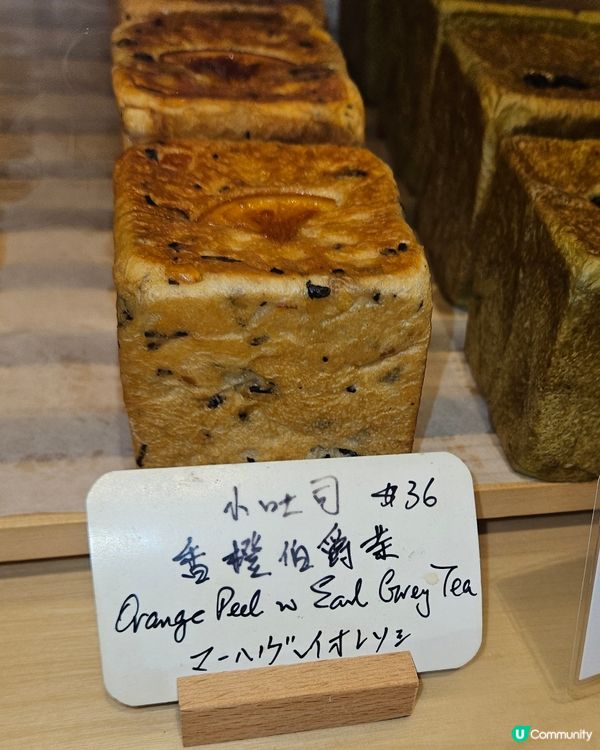 小吐司 $36
香橙伯爵茶
Orange Peel w Earl Grey Tea
アールグレイオレンジ
U Community